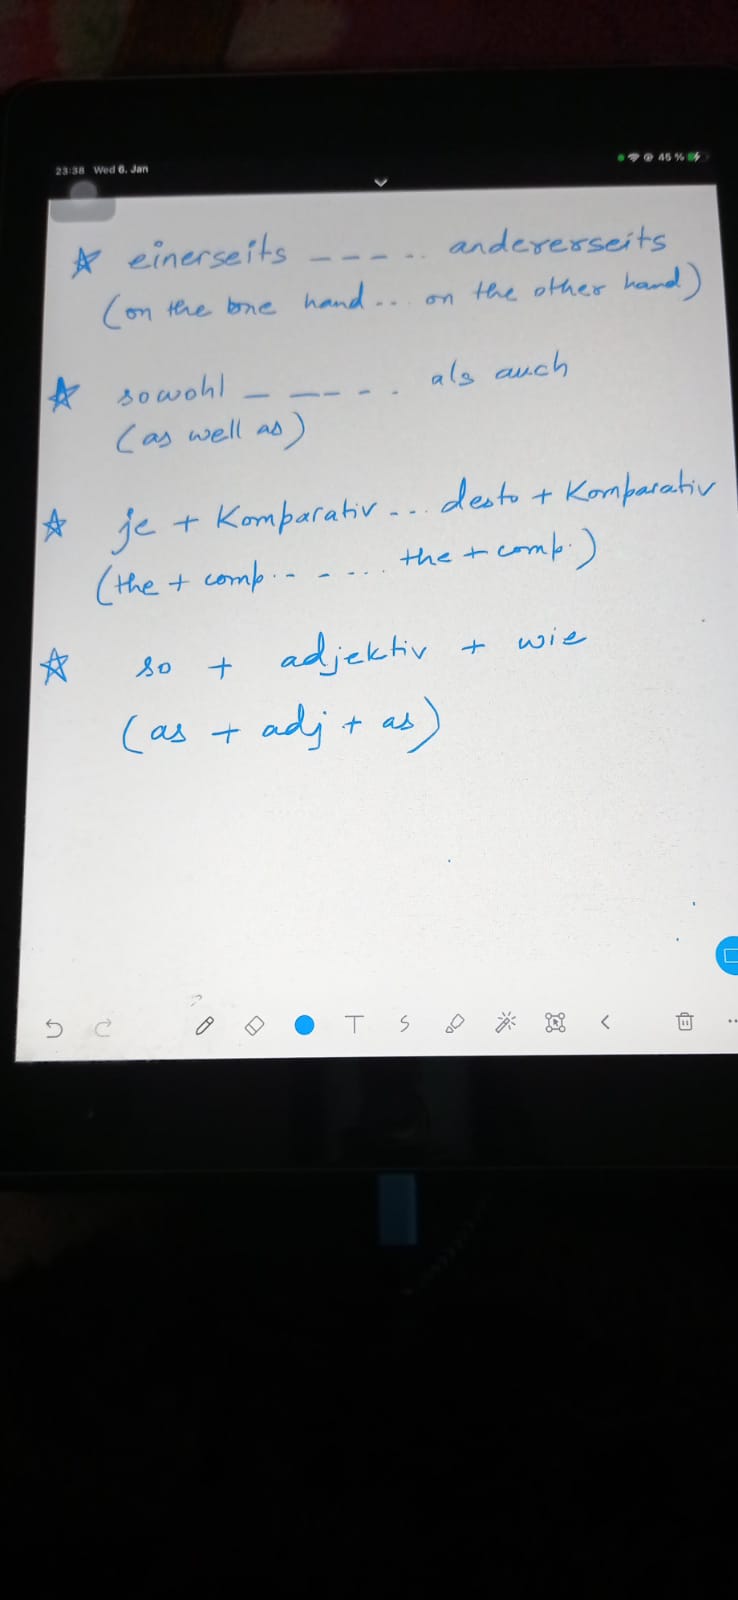 23:38 Wed 6. Jan 45 %
☆ einerseits ----.. andererseits
(on the one hand... on the other hand)
☆ sowohl ----- als auch
(as well as)
☆ je + Komparativ ... desto + Komparativ
(the + comp. ------ the + comp.)
☆ so + adjektiv + wie
(as + adj + as)
T S